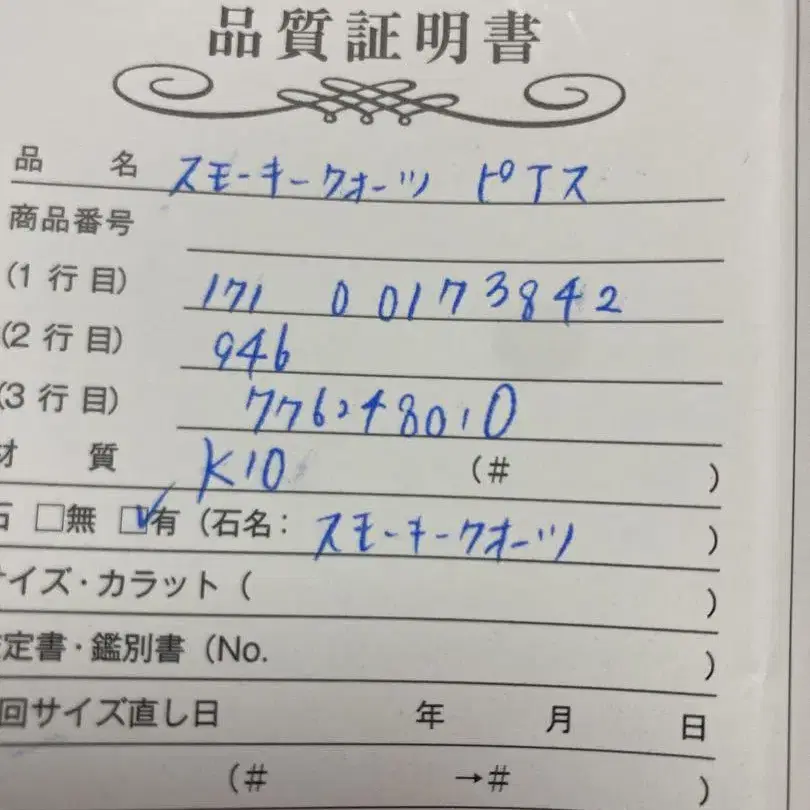 品質証明書
品 名 スモーキークォーツ ピアス
商品番号
(1行目) 171 0 0173842
(2行目) 946
(3行目) 776248010
材 質 K10 (# )
石 □無 ☑有 (石名: スモーキークオーツ )
サイズ・カラット ( )
定書・鑑別書 (No. )
回サイズ直し日 年 月 日
(# →# )